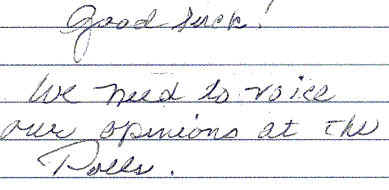 Good luck!
We need to voice
our opinions at the
Polls.